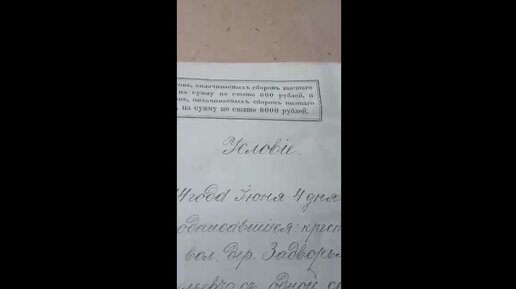 онъ, оплачиваемыхъ сборомъ высшаго
на сумму не свыше 600 рублей, и
онъ, оплачиваемыхъ сборомъ низшаго
, на сумму не свыше 6000 рублей.
Условіе.
4 года Іюня 4 дня
одписавшіеся: крест
вол. дер. Задворь
одной